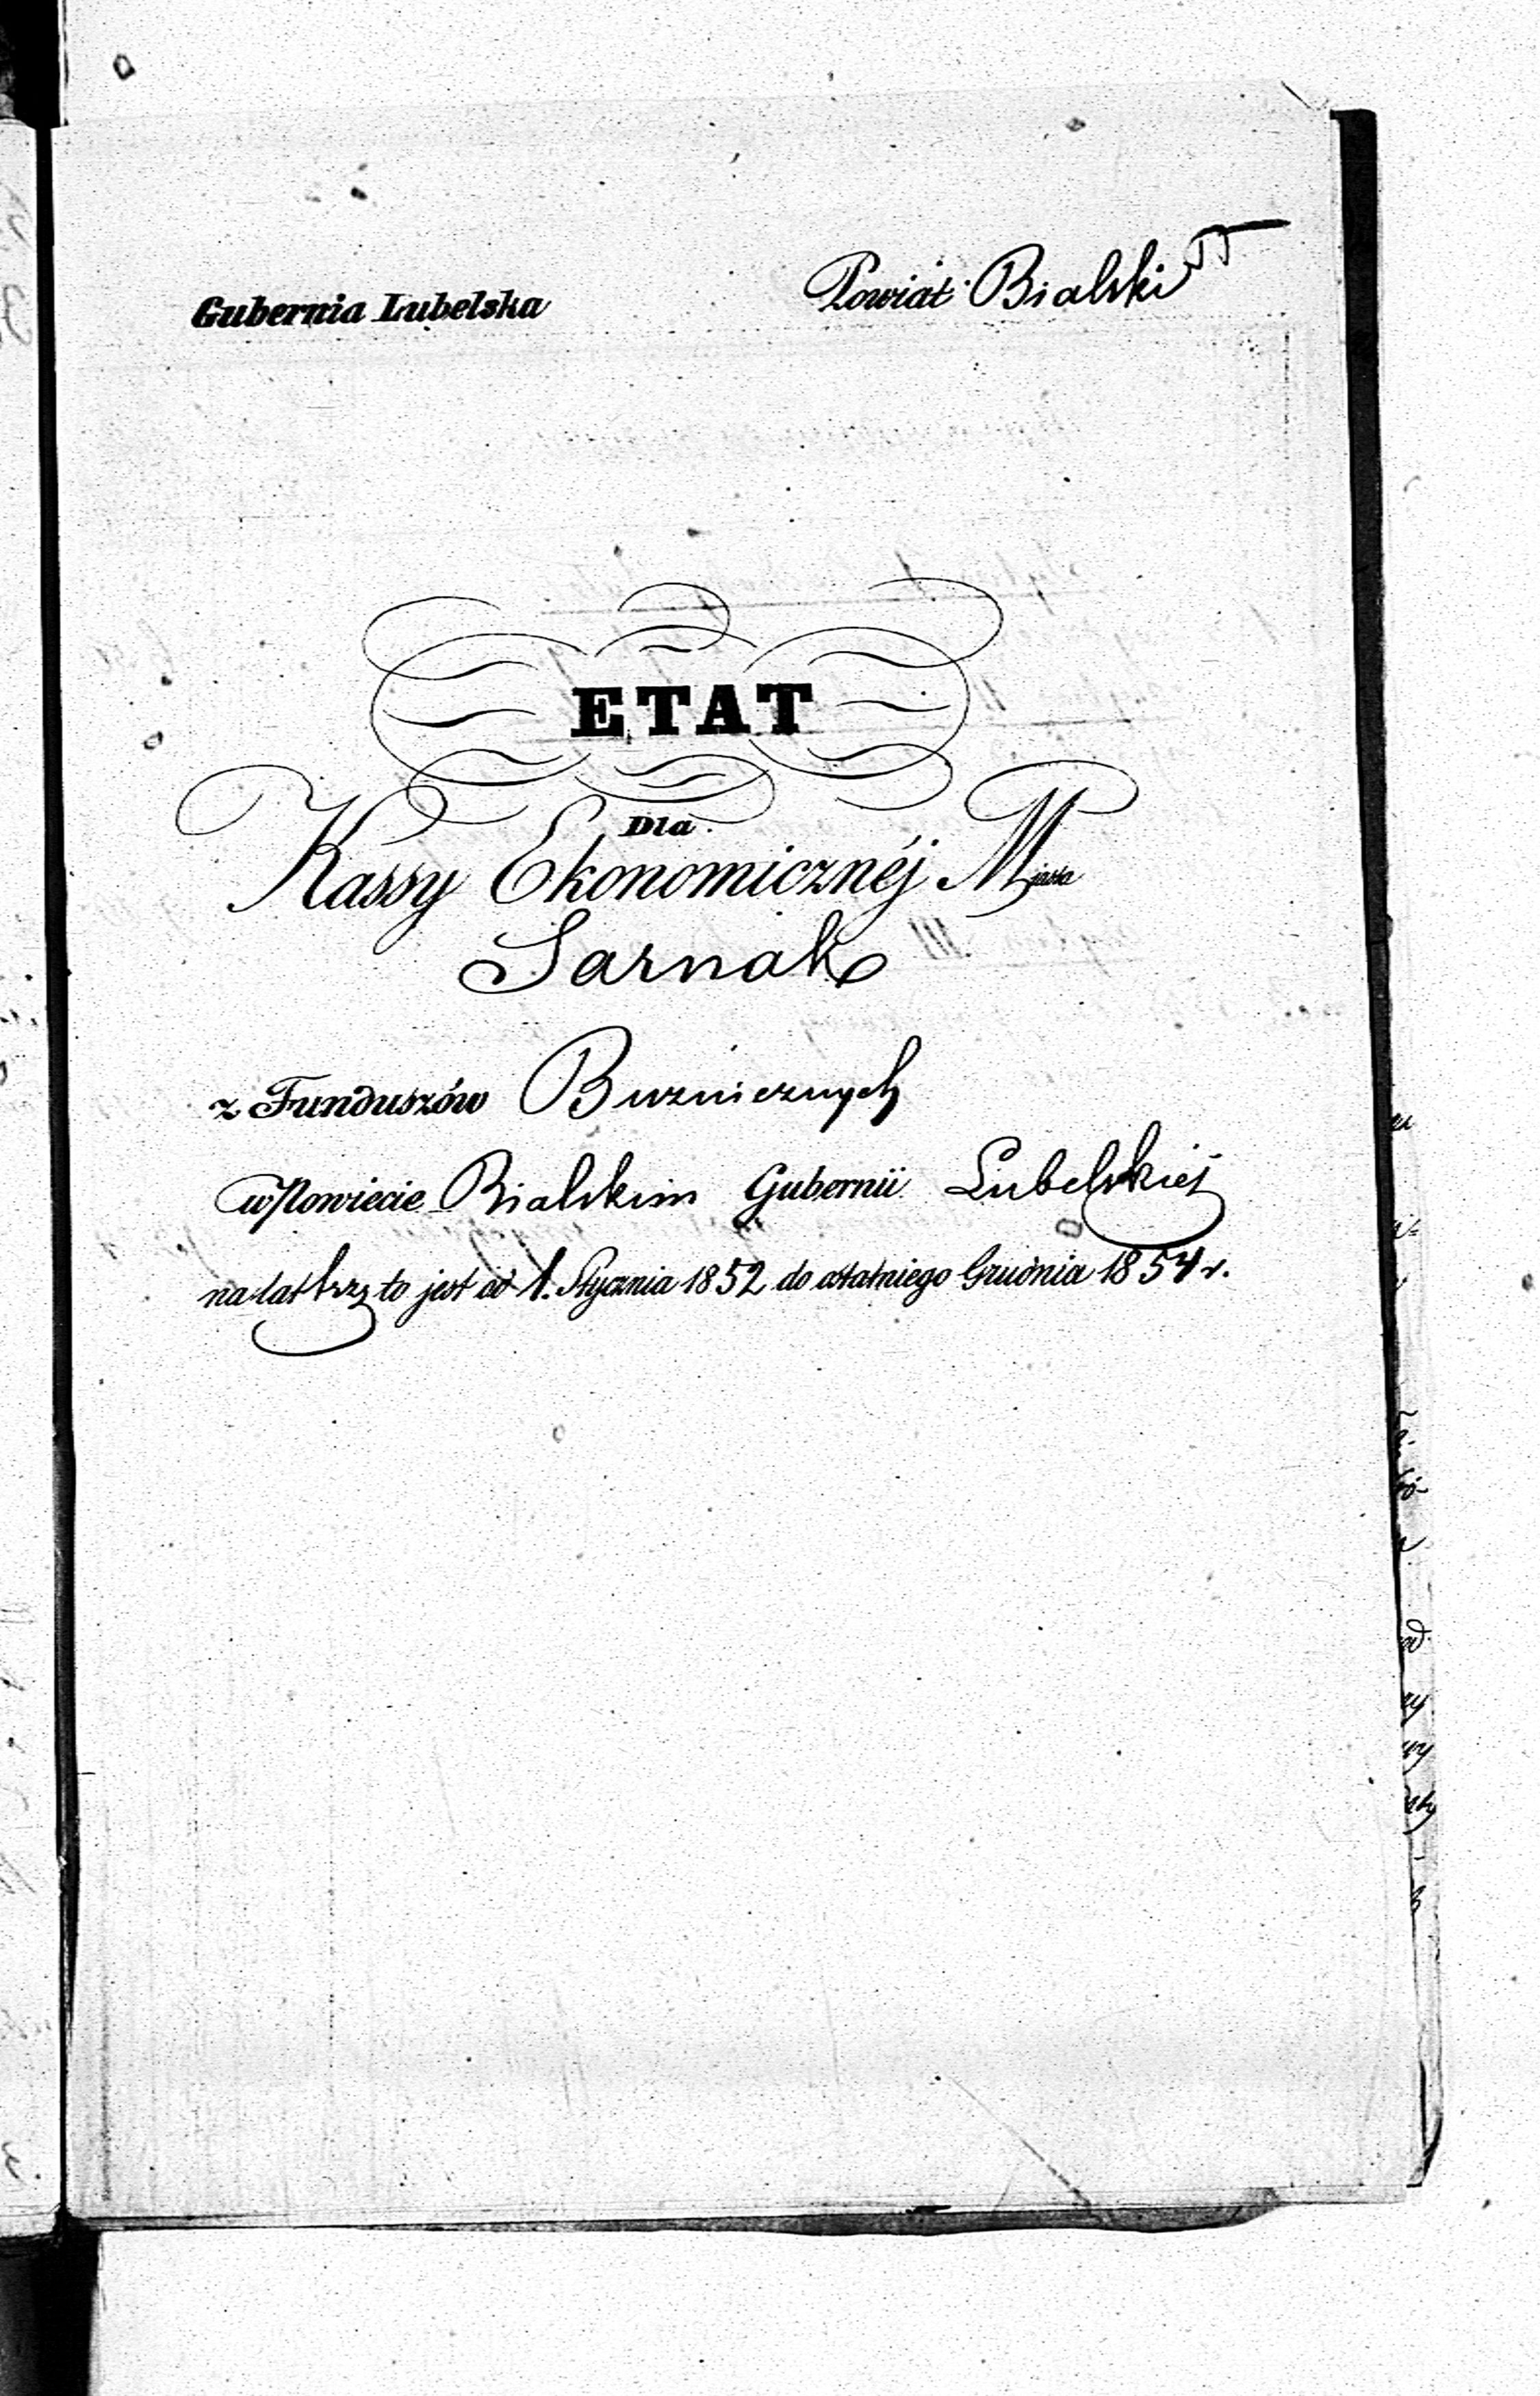 Gubernia Lubelska
Powiat Bialski
ETAT
Dla
Kassy Ekonomicznéj Miasta
Sarnak
z Funduszów Buznicznych
w Powiecie Bialskim Gubernii Lubelskiej
na lat trzy to jest od 1. Stycznia 1852 do ostatniego Grudnia 1854 r.